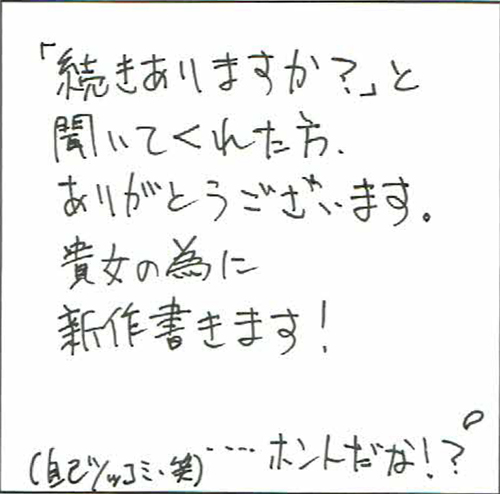 「続きありますか?」と
聞いてくれた方、
ありがとうございます。
貴女の為に
新作書きます!
(自己ツッコミ・笑)‥‥ホントだな!?